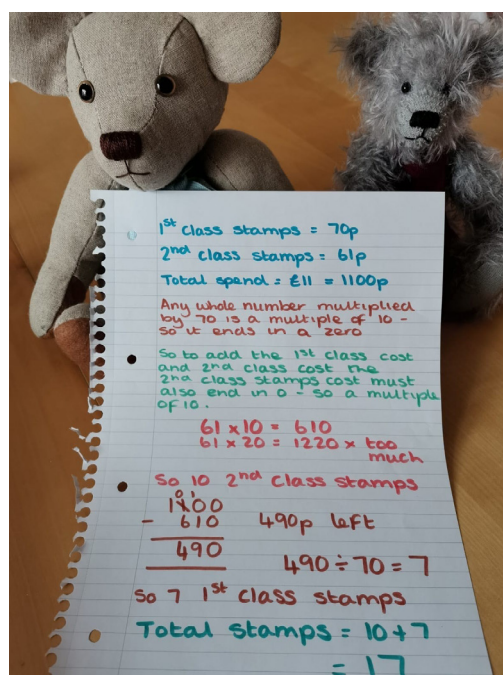 1st class stamps = 70p
2nd class stamps = 61p
Total spend = £11 = 1100p
Any whole number multiplied
by 70 is a multiple of 10 -
so it ends in a zero
So to add the 1st class cost
and 2nd class cost the
2nd class stamps cost must
also end in 0 - so a multiple
of 10.
61 x 10 = 610
61 x 20 = 1220 x too
much
So 10 2nd class stamps
0 1
1100
- 610 490p left
490
490 ÷ 70 = 7
So 7 1st class stamps
Total stamps = 10+7
= 17